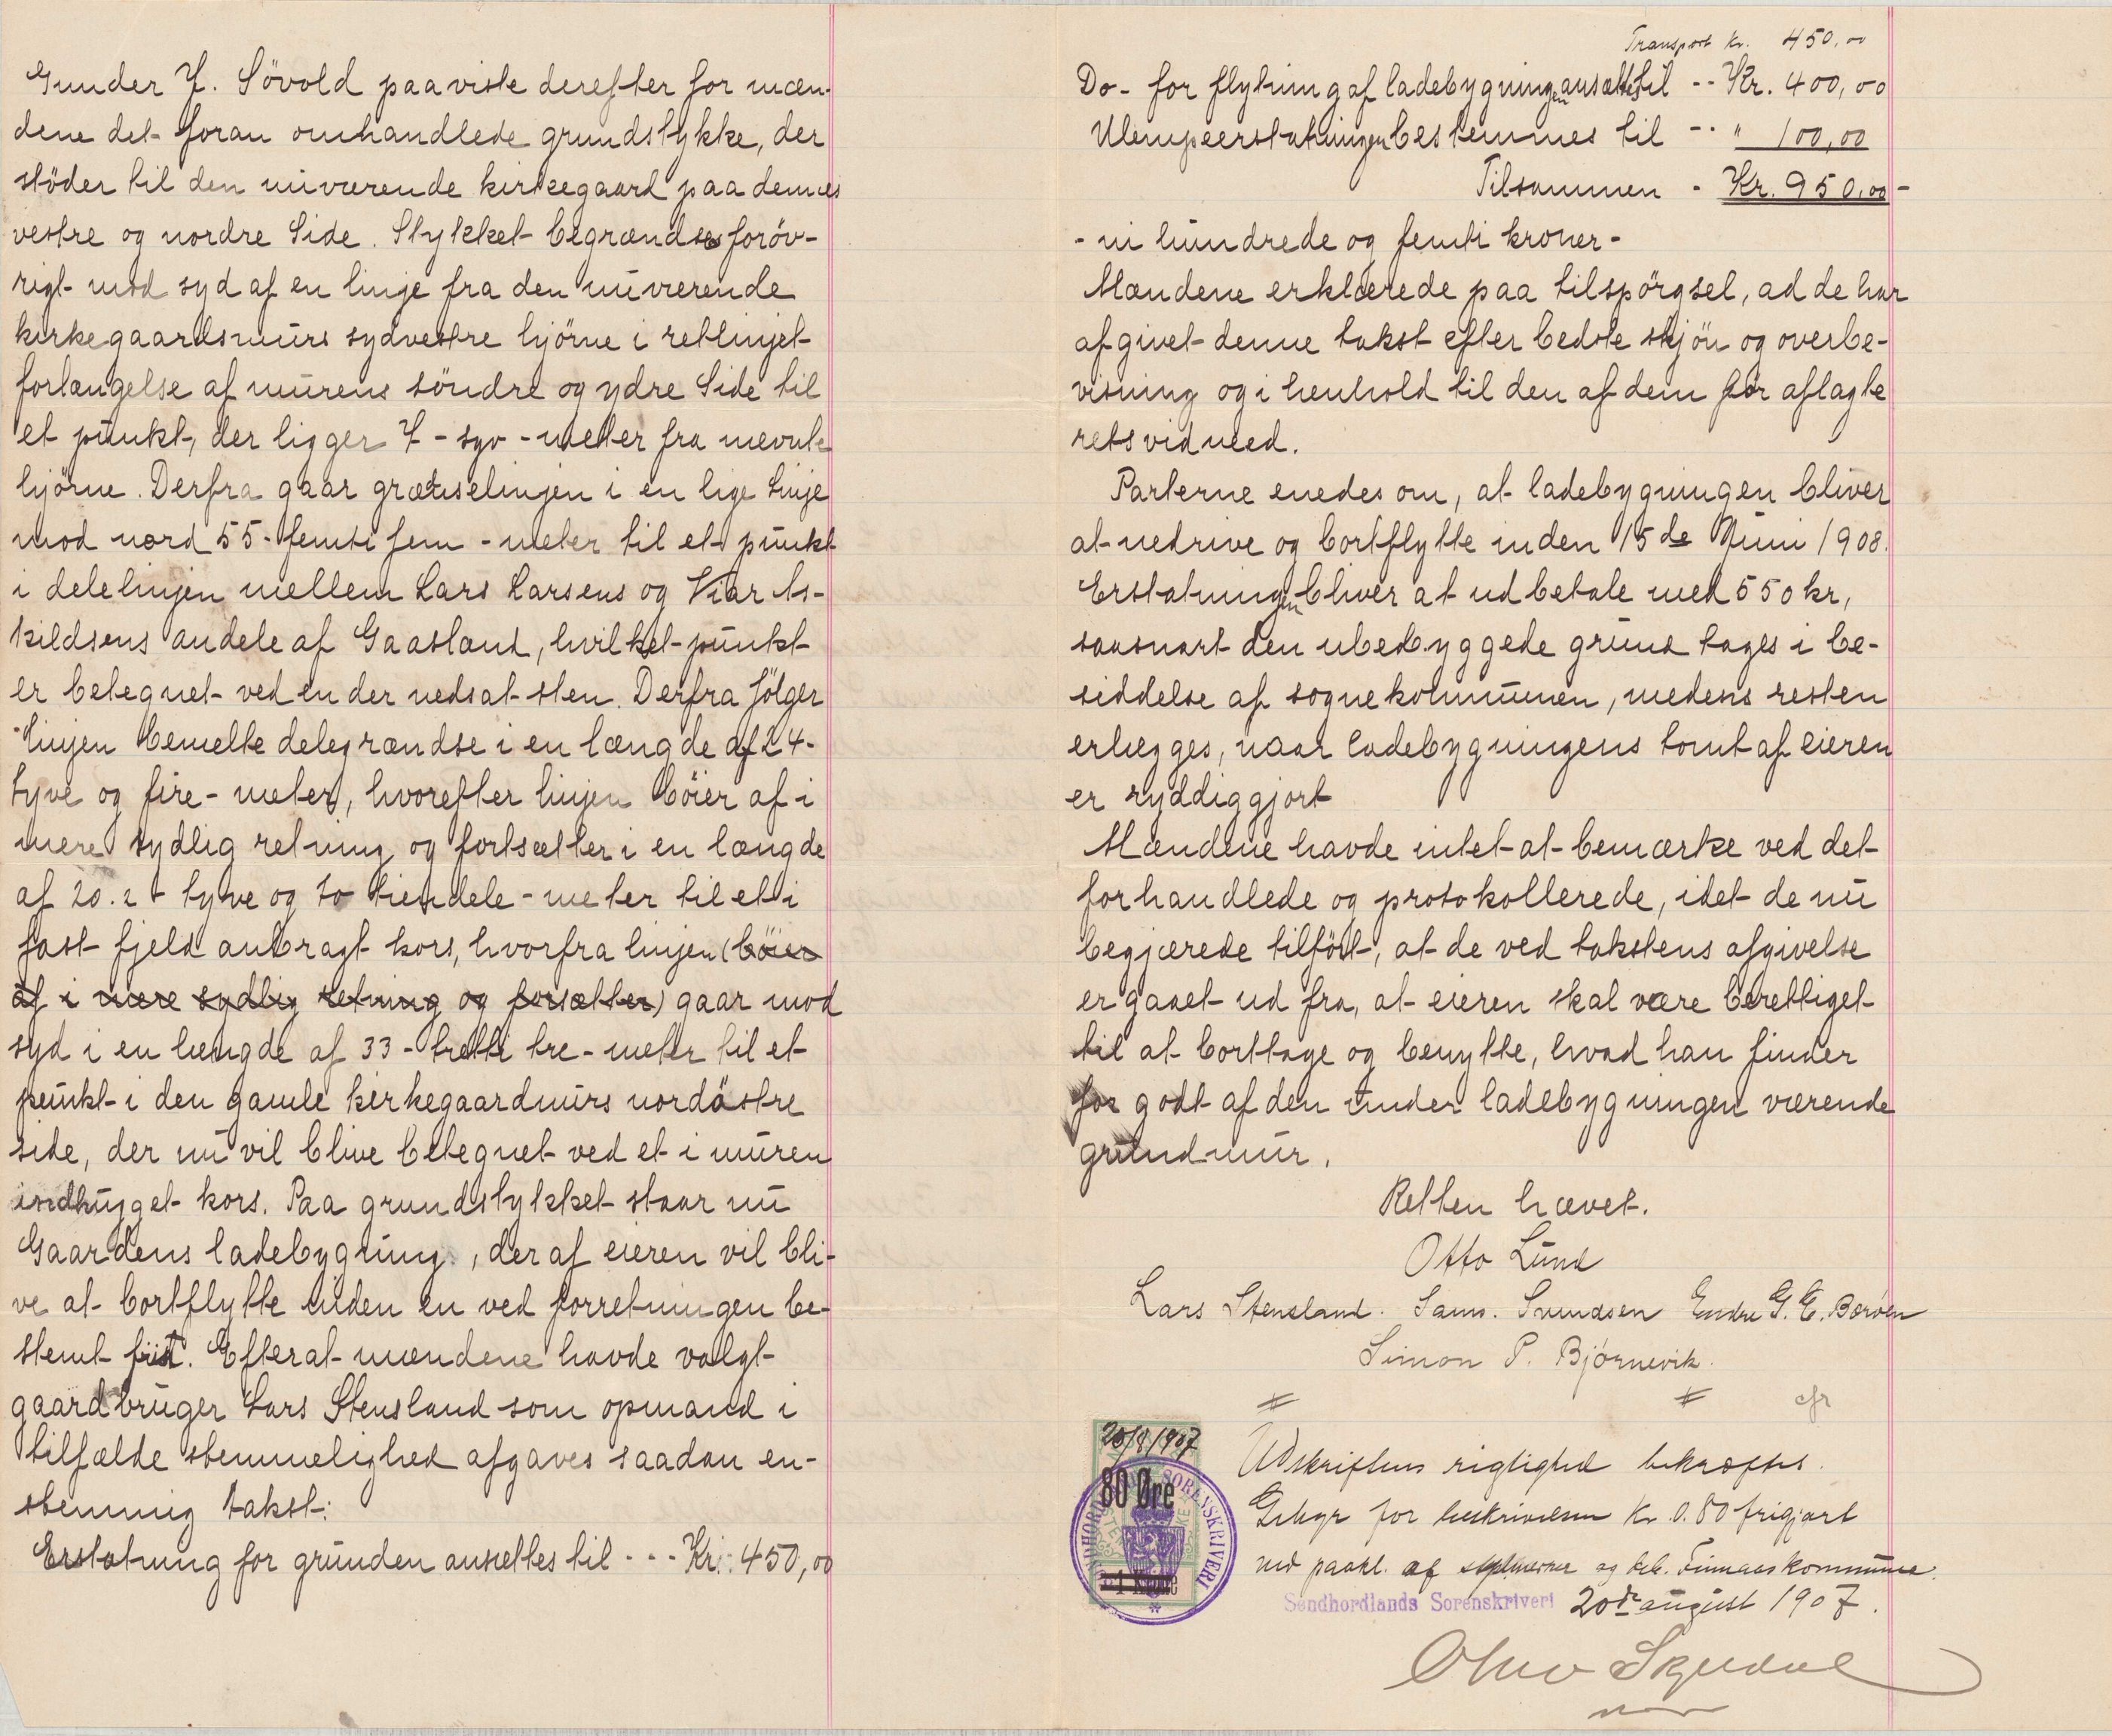 Gunder J. Sövold paaviste derefter for mæn-
dene det foran omhandlede grundstykke, der
stöder til den nuværende kirkegaard paa dennes
vestre og nordre Side. Stykket begrændses foröv-
rigt mod syd af en linje fra den nuværende
kirkegaardsmurs sydvestre hjörne i retlinjet
forlængelse af murens söndre og ydre Side til
et punkt, der ligger 7 - syv - meter fra nævnte
hjörne. Derfra gaar grænselinjen i en lige Linje
mod nord 55 - femti fem - meter til et punkt
i delelinjen mellem Lars Larsens og Viar As-
kildsens andele af Gaasland, hvilket punkt
er betegnet ved en der nedsat sten. Derfra fölger
linjen bemelte delegrændse i en længde af 24 -
tyve og fire - meter, hvorefter linjen böier af i
mere sydlig retning og fortsætter i en længde
af 20.2 - tyve og to tiendele - meter til et i
fast fjeld anbragt kors, hvorfra linjen (böier
af i mere sydlig retning og forsætter) gaar mod
syd i en længde af 33 - tretti tre - meter til et
punkt i den gamle kirkegaardmurs nordöstre
side, der nu vil blive betegnet ved et i muren
indhugget kors. Paa grundstykket staar nu
Gaardens ladebygning, der af eieren vil bli-
ve at bortflytte inden en ved forretningen be-
stemt frist. Efterat mændene havde valgt
gaardbruger Lars Stensland som opmand i
tilfælde stemmelighed afgaves saadan en-
stemmig takst:
Erstatning for grunden ansættes til - - - Kr. 450,00
Transport kr. 450,00
Do - for flytning af ladebygningen ansættes til - - Kr. 400,00
Ulempeerstatningen bestemmes til - - " 100,00
Tilsammen - Kr. 950,00 -
- ni hundrede og femti kroner -
Mændene erklærede paa tilspörgsel, ad de har
afgivet denne takst efter bedste skjön og overbe-
visning og i henhold til den af dem för aflagte
retsvidneed.
Parterne enedes om, at ladebygningen bliver
at nedrive og bortflytte inden 15de Juni 1908.
Erstatningen bliver at udbetale med 550 kr,
saasnart den ubebyggede grund tages i be-
siddelse af sognekommunen, medens resten
erlægges, naar ladebygningens tomt af eieren
er ryddiggjort
Mændene havde intet at bemærke ved det
forhandlede og protokollerede, idet de nu
begjærede tilfört, at de ved takstens afgivelse
er gaaet ud fra, at eieren skal være berettiget
til at borttage og benytte, hvad han finder
for godt af den under ladebygningen værende
grundmur.
Retten hævet.
Otto Lund
Lars Stensland. Sams. Svendsen Endre G. E. Børøen
Simon P. Bjørnevik.
cfr
20/8/1907
80 Øre
1 Krone
SØNDHORDLANDS SORENSKRIVERI
Udskriftens rigtighed bekræftes.
Gebyr for beskrivelsen Kr. 0.80 frigjort
ved paakl. af stplmerker og deb. Finnaas kommune.
Søndhordlands Sorenskriveri 20de august 1907.